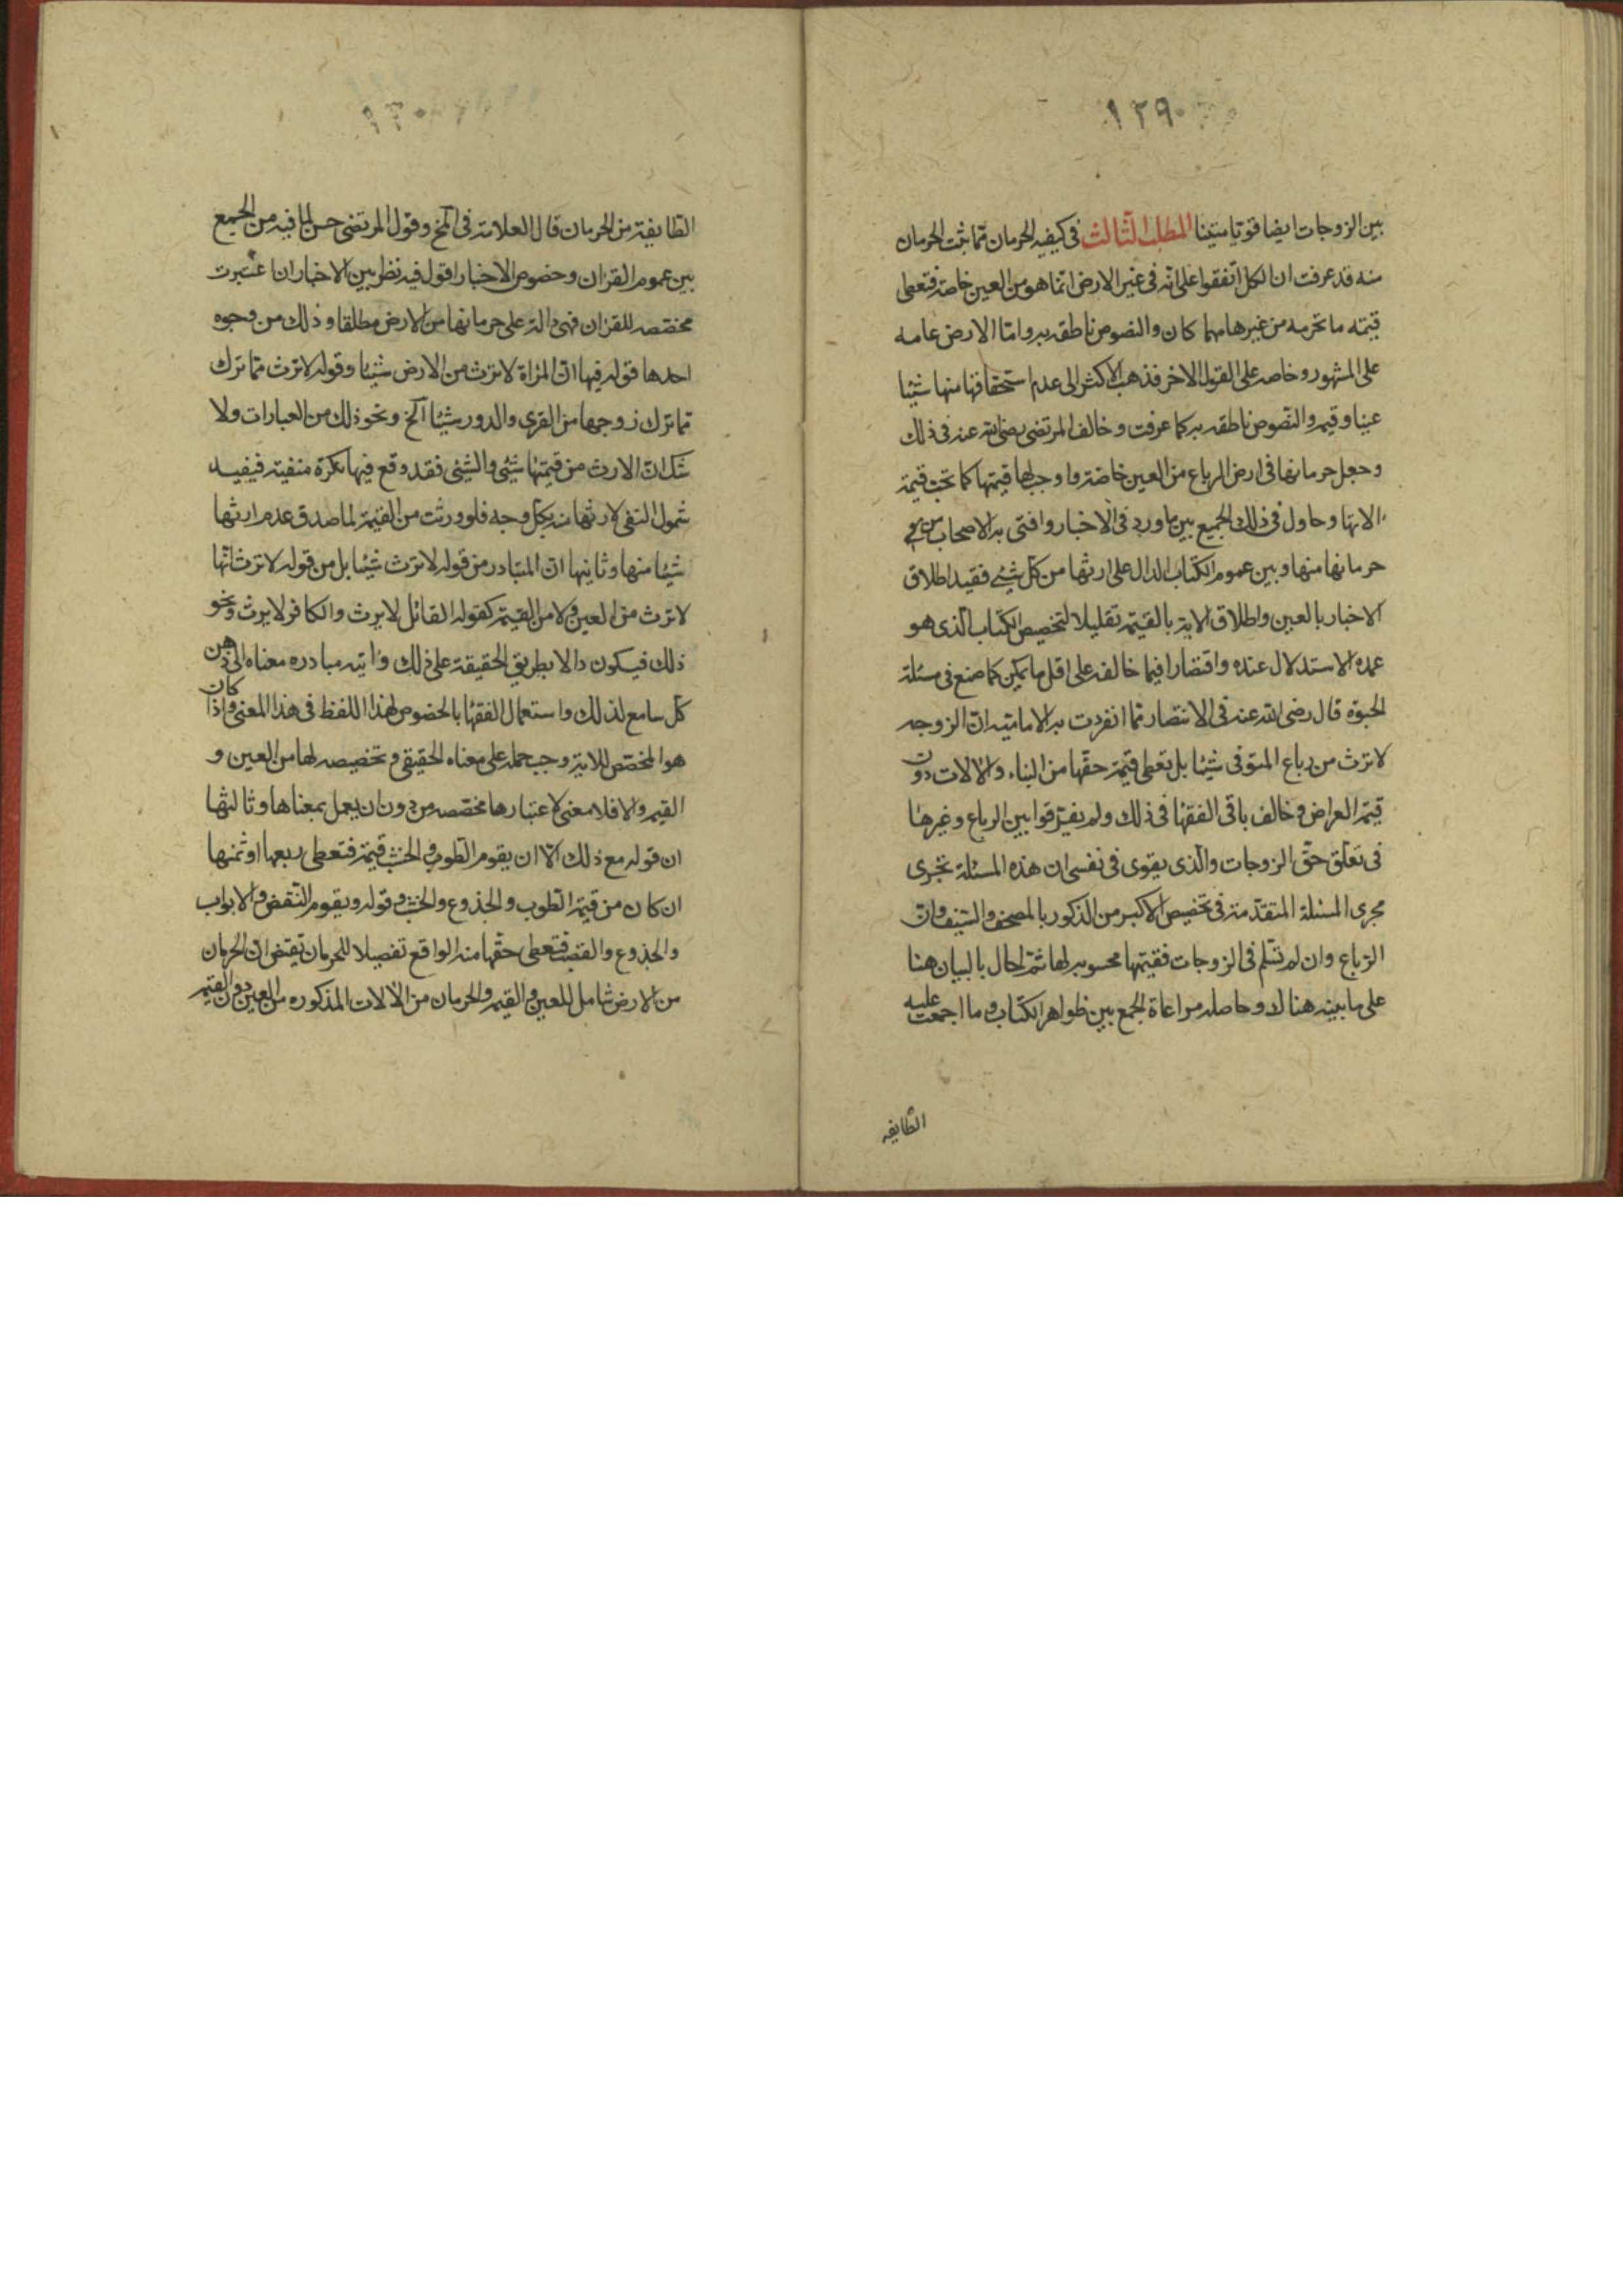 ١٢٩
بين الزوجات ايضا قويا متينا المطلب الثالث فى كيفيه الحرمان ممّا يثبت الحرمان
منه قد عرفت ان الكل اتفقوا على انّه فى غير الارض انّما هو من العين خاصة فتعطى
قيمته ما تحرمه من غيرها مهما كان والنصوص ناطقه به وامّا الارض عامه
على المشهور و خاصه على القول الاخر فذهب الاكثر الى عدم استحقاقها منها شيئا
عينا وقيمة والنّصوص ناطقه به كما عرفت و خالف المرتضى رضى الله عنه فى ذلك
وجعل حرمانها فى ارض الرباع من العين خاصّة واوجب لها قيمتها كما تجب قيمة
الاتها وحاول فى ذلك الجمع بين ما ورد فى الاخبار وافتى به الاصحاب من
حرمانها منها وبين عموم الكتاب الدال على ارثها من كلّ شئ فقيد اطلاق
الاخبار بالعين واطلاق الاية بالقيمة تقليلا لتخصيص الكتاب الّذى هو
عمده الاستدلال عنده واقتصارا فيما خالفه على اقل ما يمكن كما صنع فى مسئلة
الحبوة قال رضى الله عنه فى الانتصار ممّا انفردت به الاماميّه انّ الزوجه
لا ترث من رباع المتوّفى شيئا بل تعطى قيمة حقّها من البناء والالات دون
قيمة العراض وخالف باقى الفقهٰا فى ذلك ولم يفرّقوا بين الرباع وغيرهٰا
فى تعلّق حقّ الزوجات والّذى يقوى فى نفسى ان هذه المسئلة تجرى
مجرى المسئلة المتقدّمة فى تخصيص الاكبر من الذكور بالمصحف والسّيف وان
الرّباع وان لم تسلم فى الزوجات فقيمتها محسوبه لها ثمّ احال بالبيان هنا
على ما بيّنه هناك وحاصله مراعاة الجمع بين ظواهر الكتاب وما اجمعت عليه
الطّايفه
١٣٠
الطّايفة من الحرمان قال العلامة فى الخ وقول المرتضى حسن لما فيه من الجمع
بين عموم القران وخصوص الاخبار اقول فيه نظر بين الاخبار ان اعتبرت
مخصّصه للقران فهى دالة على حرمانها من الارض مطلقا و ذلك من وجوه
احدها قوله فيها انّ المراة لا ترث من الارض شيئا وقوله لا ترث ممّا ترك
ممّا ترك زوجها من القرى والدور شيئا الخ ونحو ذلك من العبارات ولا
شك انّ الارث من قيمتها شئ والشئ فقد وقع فيها نكرة منفية فيفيد
شمول النفى لارثها منه بكلّ وجه فلو ورثت من القيمة لما صدق عدم ارثها
شيئا منها وثانيها انّ المتبادر من قوله لا ترث شيئا بل من قوله لا ترث انّها
لا ترث من العين ولا من القيمة كقوله القاتل لا يرث والكافر لا يرث ونحو
ذلك فيكون دالا بطريق الحقيقة على ذلك وايته مبادره معناه الى ذهن
كلّ سامع لذلك واستعمال الفقهٰا بالخصوص لهذا اللفظ فى هذا المعنى واذا كان
هو المخصّص للاية وجب حمله على معناه الحقيقى وتخصيصه لها من العين و
القيمة والا فلا معنى لاعتبارها مخصّصه من دون ان يعمل بمعناها وثالثها
ان قوله مع ذلك الّا ان يقوم الطّوب والخشب قيمة فتعطى ربعها او ثمنها
ان كان من قيمة الطّوب والجذوع والخشب وقوله ويقوم النّقض والابواب
والجذوع والقصب فتعطى حقّها منه الواقع تفصيلا للحرمان يقتضى انّ الحرمان
من الارض شامل للعين والقيمة والحرمان من الالات المذكوره من العين دون القيمة